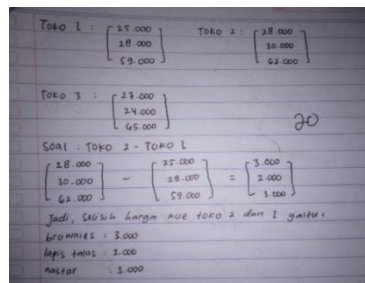 Toko 1 : [ 25.000 Toko 2 : [ 28.000
28.000 30.000
59.000 ] 62.000 ]
Toko 3 : [ 27.000
24.000
65.000 ]
20
Soal : Toko 2 - Toko 1
[ 28.000 [ 25.000 [ 3.000
30.000 - 28.000 = 2.000
62.000 ] 59.000 ] 3.000 ]
Jadi, selisih harga kue toko 2 dan 1 yaitu :
brownies : 3.000
lapis talas : 2.000
nastar : 3.000